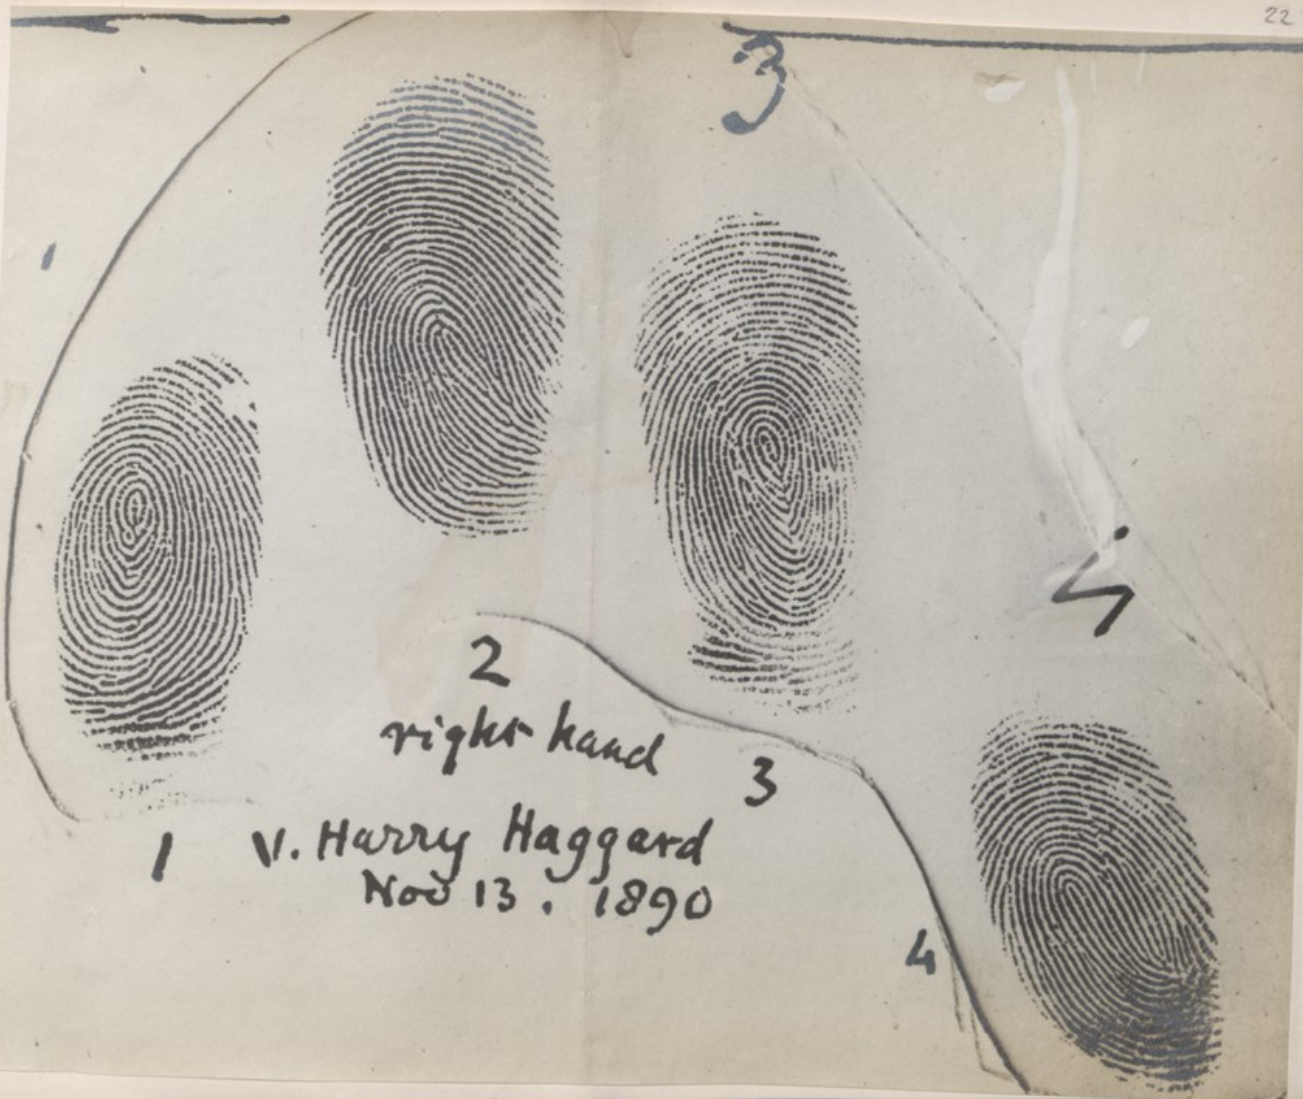 22
3
1
4
2
right hand
3
1 V. Harry Haggard
Nov 13. 1890
4